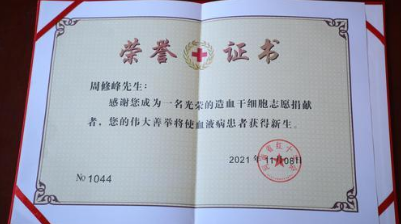 荣誉证书
周修峰先生：
感谢您成为一名光荣的造血干细胞志愿捐献
者，您的伟大善举将使血液病患者获得新生。
2021 11月08日
No 1044